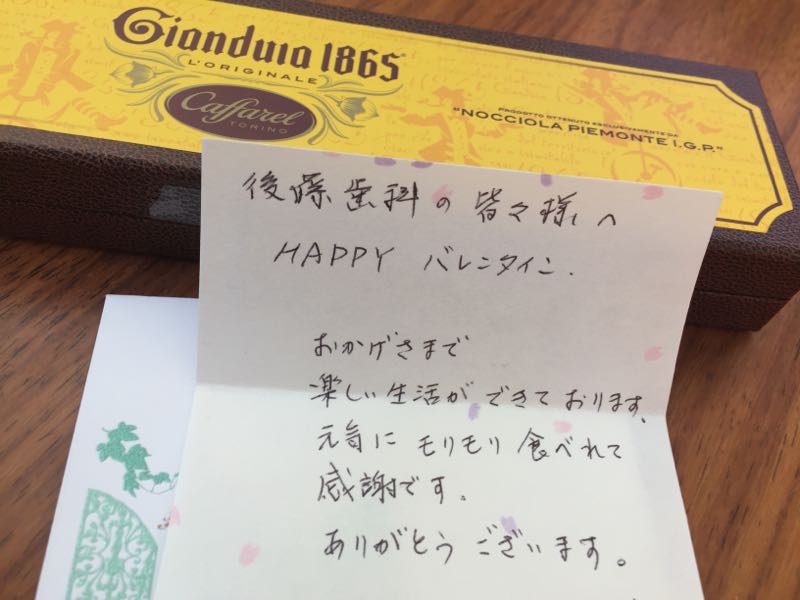 Gianduia 1865
L'ORIGINALE
Caffarel
TORINO
PRODOTTO OTTENUTO ESCLUSIVAMENTE DA
"NOCCIOLA PIEMONTE I.G.P."
後藤歯科の皆々様へ
HAPPY バレンタイン.
おかげさまで
楽しい生活ができております。
元気にモリモリ食べれて
感謝です。
ありがとうございます。